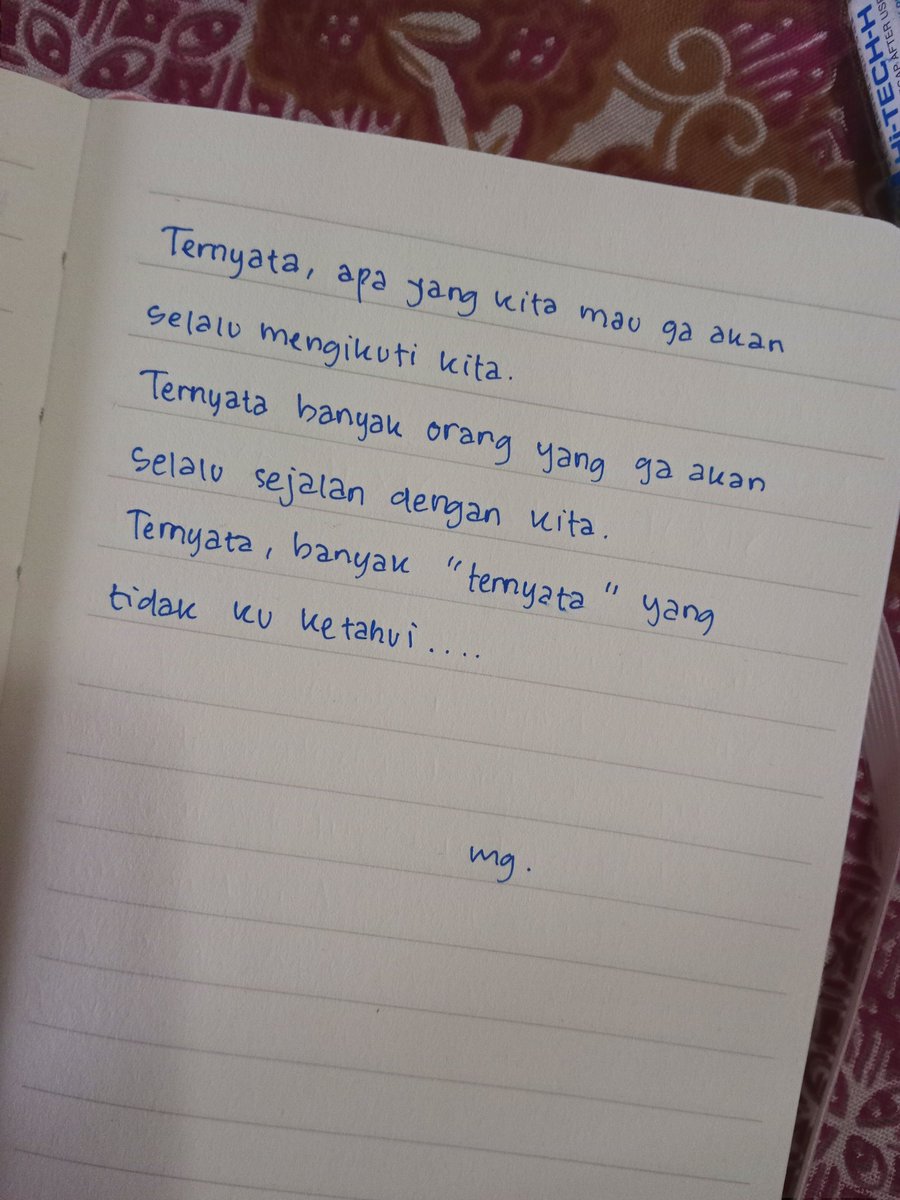 Hi-TECH-H
CAP AFTER USE
Ternyata, apa yang kita mau ga akan
selalu mengikuti kita.
Ternyata banyak orang yang ga akan
selalu sejalan dengan kita.
Ternyata, banyak "ternyata" yang
tidak ku ketahui....
mg.